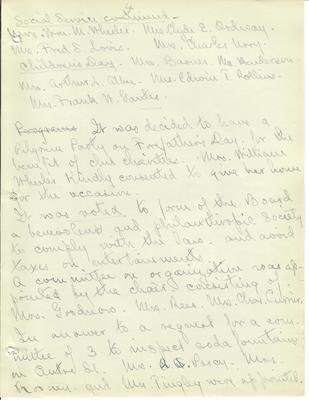 Social Service continued -
Mrs Wm. M. Wheeler. Mrs Clyde E. Ordway.
Mrs. Fred S. Mrs. Charles
Children's Day. Mrs. Barnes Mrs Henderson.
Mrs. Arthur L. Mrs. Edwin T. Rollins.
Mrs. Frank W.
Programs It was decided to have a
Pilgrim Party on Forefathers Day, for the
benefit of club charities. Mrs. William
Wheeler Kindly consented to give her house
for the occasion.
It was voted to form of the Board
a benevolent and philanthropic Society
to comply with the law. and avoid
taxes on entertainments.
A committee on organization was ap-
pointed by the chair consisting of :
Mrs. Mrs. Rees. Mrs. Chas.
In answer to a request for a com-
mittee of 3 to inspect soda fountains
on Mrs. A.S. Percy. Mrs.
and Mrs Tingley were appointed.